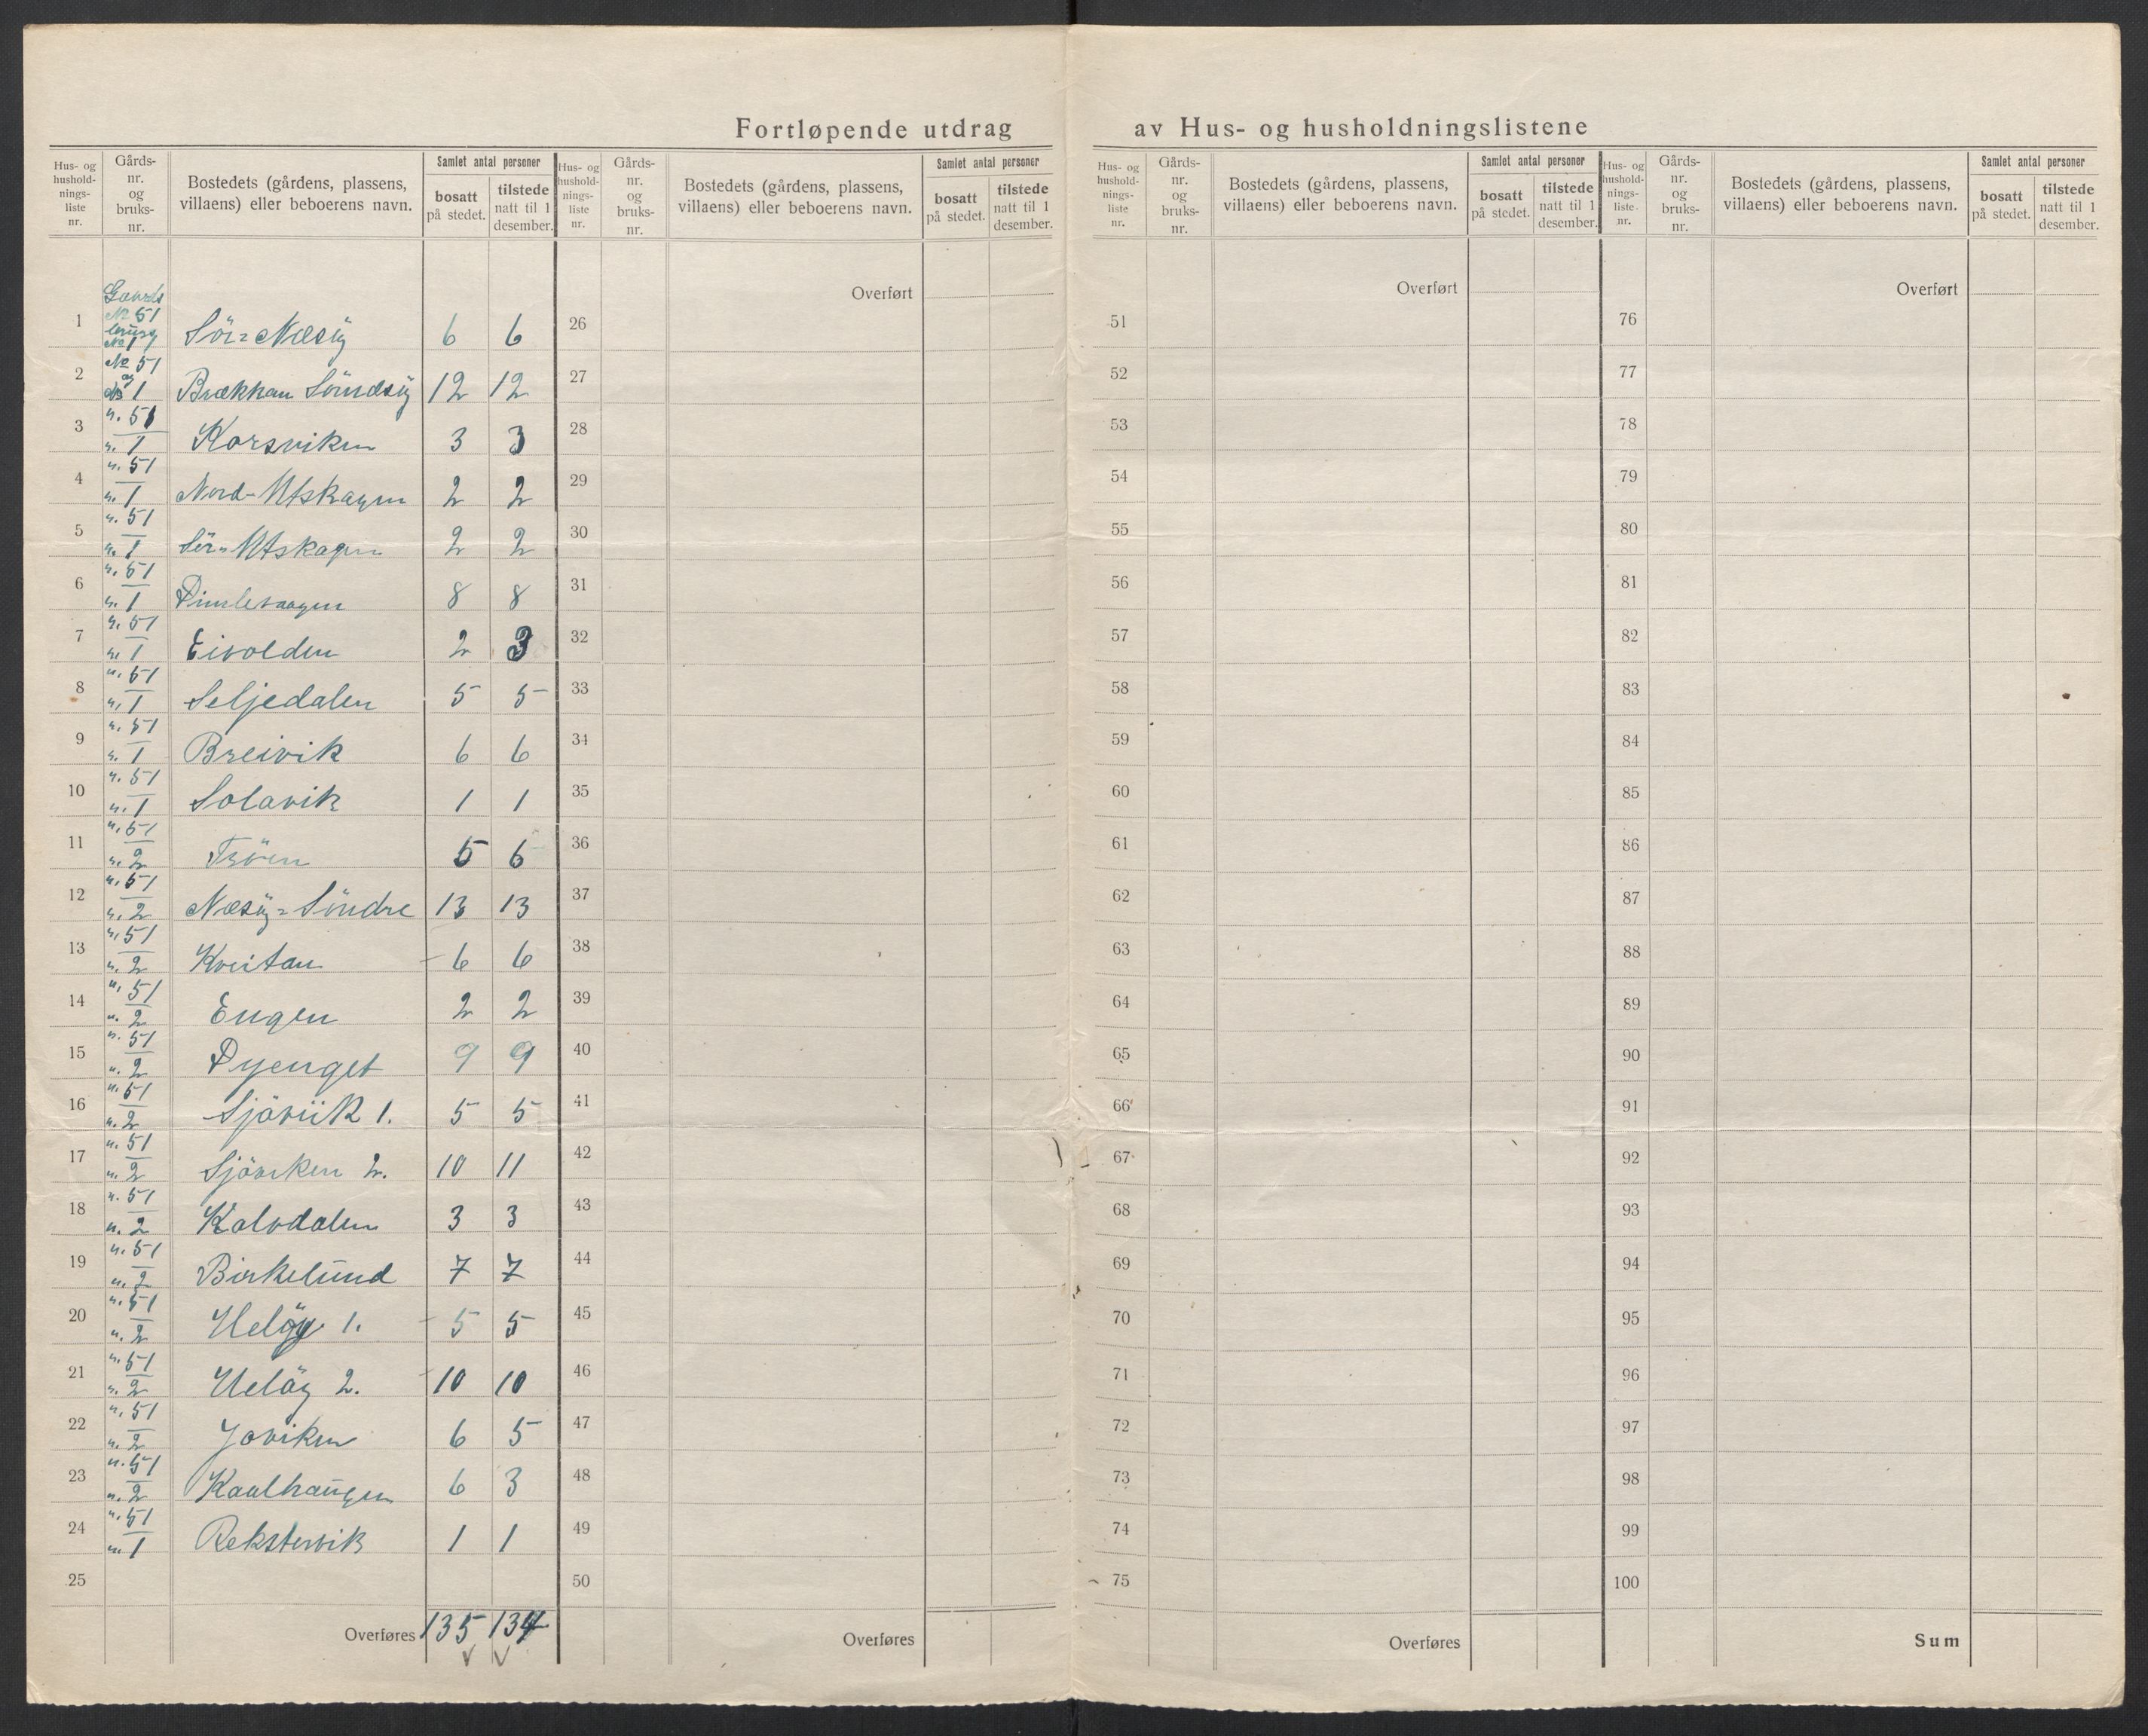 Fortløpende utdrag av Hus- og husholdningslistene
Hus- og hushold- nings- liste nr. | Gårds- nr. og bruks- nr. | Bostedets (gårdens, plassens, villaens) eller beboerens navn. | Samlet antal personer | bosatt på stedet. | tilstede natt til 1 desember.
Hus- og hushold- nings- liste nr. | Gårds- nr. og bruks- nr. | Bostedets (gårdens, plassens, villaens) eller beboerens navn. | Samlet antal personer | bosatt på stedet. | tilstede natt til 1 desember.
Hus- og hushold- nings- liste nr. | Gårds- nr. og bruks- nr. | Bostedets (gårdens, plassens, villaens) eller beboerens navn. | Samlet antal personer | bosatt på stedet. | tilstede natt til 1 desember.
Hus- og hushold- nings- liste nr. | Gårds- nr. og bruks- nr. | Bostedets (gårdens, plassens, villaens) eller beboerens navn. | Samlet antal personer | bosatt på stedet. | tilstede natt til 1 desember.
Overført Overført Overført
1 Gaards No 51 No 1 Sör-Næsöy 6 6 26 51 76
2 No 51 No 1 Brækkan 12 12 27 52 77
3 n. 51 n. 1 Korsviken 3 3 28 53 78
4 n. 51 n. 1 Nord-Utskagen 2 2 29 54 79
5 n. 51 n. 1 Sör-Utskagen 2 2 30 55 80
6 n. 51 n. 1 8 8 31 56 81
7 n. 51 n. 1 Eivolden 2 3 32 57 82
8 n. 51 n. 1 Seljedalen 5 5 33 58 83
9 n. 51 n. 1 Breivik 6 6 34 59 84
10 n. 51 n. 1 Solavik 1 1 35 60 85
11 n. 51 n. 2 Tröen 5 6 36 61 86
12 n. 51 n. 2 Næsöy-Söndre 13 13 37 62 87
13 n. 51 n. 2 Kveitan 6 6 38 63 88
14 n. 51 n. 2 Engen 2 2 39 64 89
15 n. 51 n. 2 Dyenget 9 9 40 65 90
16 n. 51 n. 2 Sjöviik 1. 5 5 41 66 91
17 n. 51 n. 2 Sjöviken 2. 10 11 42 67 92
18 n. 51 n. 2 Kalvdalen 3 3 43 68 93
19 n. 51 n. 2 Birkelund 7 7 44 69 94
20 n. 51 n. 2 Heløy 1. 5 5 45 70 95
21 n. 51 n. 2 Helöy 2. 10 10 46 71 96
22 n. 51 n. 2 Joviken 6 5 47 72 97
23 n. 51 n. 2 Kaalhaugen 6 3 48 73 98
24 n. 51 n. 1 Rekstervik 1 1 49 74 99
25 50 75 100
Overføres 135 134 Overføres Overføres Sum